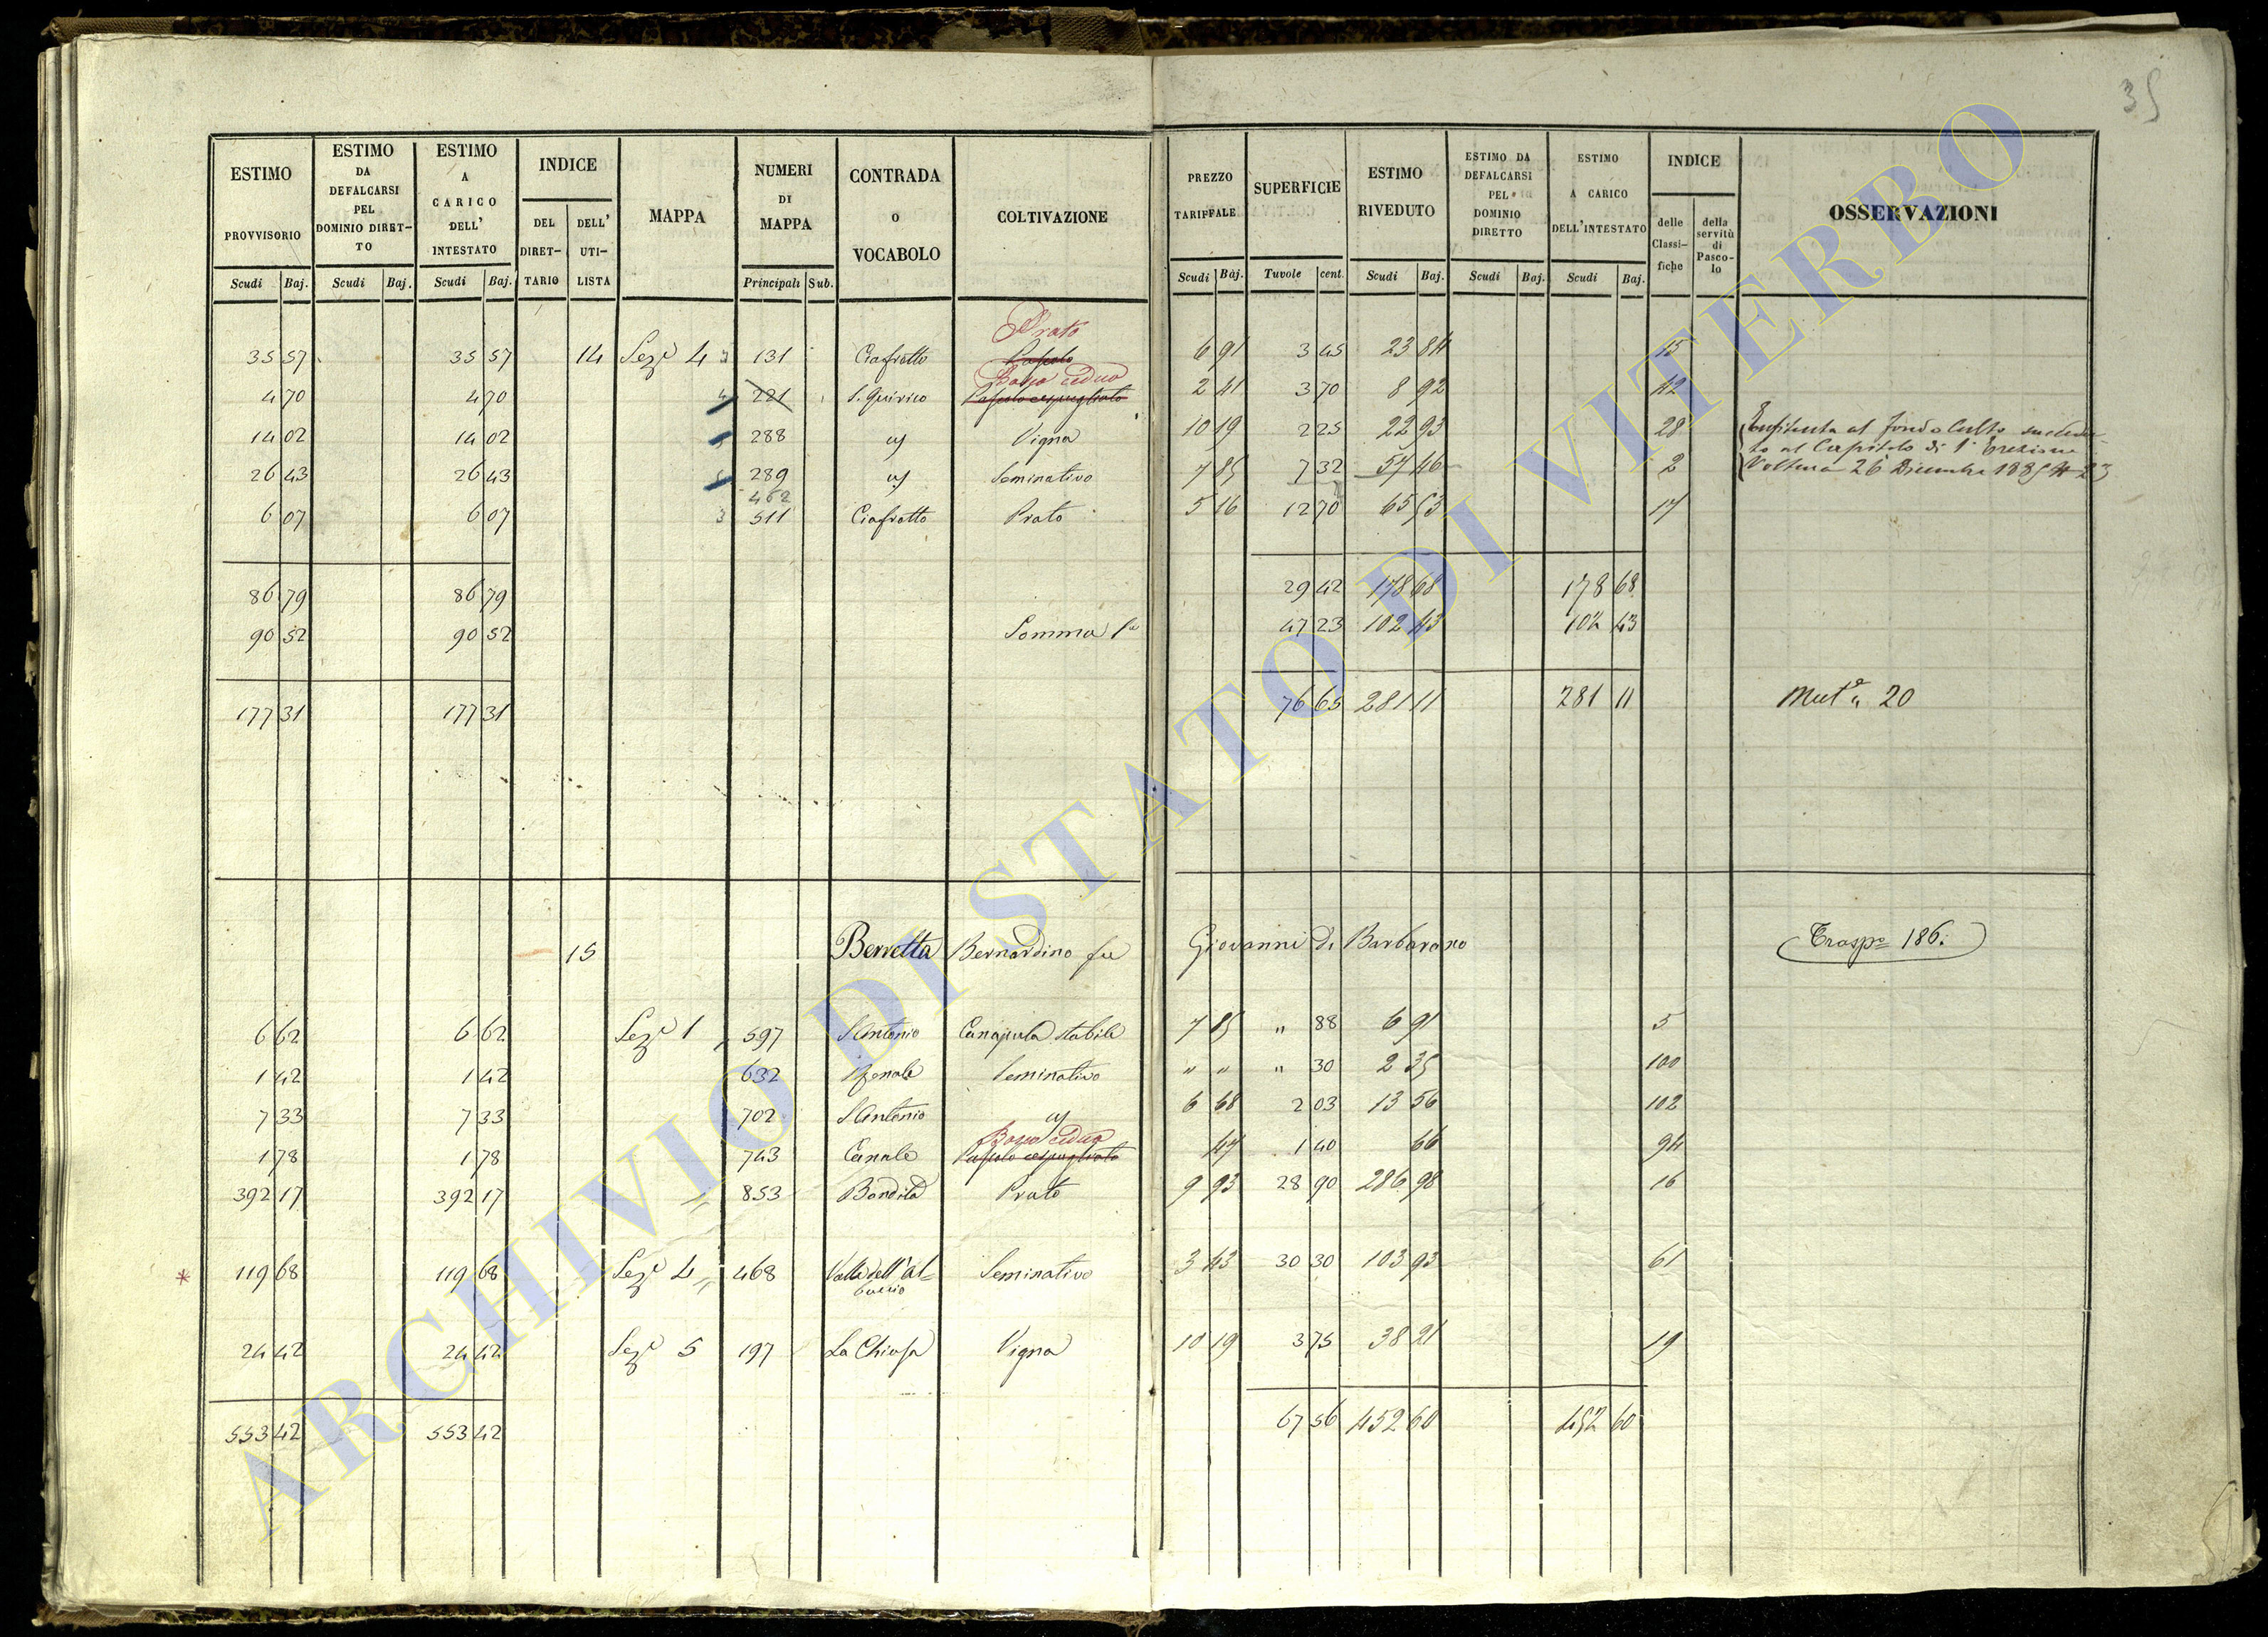 35
ESTIMO PROVVISORIO | ESTIMO DA DEFALCARSI PEL DOMINIO DIRETTO | ESTIMO A CARICO DELL' INTESTATO | INDICE | MAPPA | NUMERI DI MAPPA | CONTRADA O VOCABOLO | COLTIVAZIONE | PREZZO TARIFFALE | SUPERFICIE | ESTIMO RIVEDUTO | ESTIMO DA DEFALCARSI PEL DOMINIO DIRETTO | ESTIMO A CARICO DELL'INTESTATO | INDICE | OSSERVAZIONI
DEL DIRETTARIO | DELL' UTILISTA | delle Classifiche | della servitù di Pascolo
Scudi | Baj. | Scudi | Baj. | Scudi | Baj. | Principali | Sub. | Scudi | Baj. | Tavole | cent. | Scudi | Baj. | Scudi | Baj. | Scudi | Baj.
Prato
35 57 | 35 57 | 14 | Sez.e 4 | 3 | 131 | Ciafrotto | Pascolo | 6 91 | 3 45 | 23 84 | 15
Bosco ceduo
4 70 | 4 70 | 4 | 221 | S. Quirico | Pascolo cespugliato | 2 41 | 3 70 | 8 92 | 42
14 02 | 14 02 | 288 | Vigna | 10 19 | 2 25 | 22 93 | 28 | Enfiteuta al fondo Culto succedu-
to al Capitolo di 1a Erezione
26 43 | 26 43 | 289 | Seminativo | 7 85 | 7 32 | 57 46 | 2 | Voltura 26 Dicembre 1885 N 23
462
6 07 | 6 07 | 3 | 511 | Ciafrotto | Prato | 5 16 | 12 70 | 65 53 | 17
86 79 | 86 79 | 29 42 | 178 68 | 178 68
90 52 | 90 52 | Somma | 47 23 | 102 43 | 102 43
177 31 | 177 31 | 76 65 | 281 11 | 281 11 | Mut.e 20
15 | Berretta Bernardino fu Giovanni di Barbarano | Trasp.o 186.
6 62 | 6 62 | Sez.e 1 | 597 | S Antonio | Canapula stabile | 7 85 | " 88 | 6 91 | 5
1 42 | 1 42 | 632 | Seminativo | " " | " 30 | 2 35 | 100
7 33 | 7 33 | 702 | S Antonio | 6 68 | 2 03 | 13 56 | 102
Bosco ceduo
1 78 | 1 78 | 743 | Canale | Pascolo cespugliato | 47 | 1 40 | 66 | 94
392 17 | 392 17 | 853 | Bandita | Prato | 9 93 | 28 90 | 286 98 | 16
* 119 68 | 119 68 | Sez.e 4 | 468 | Valle dell'Al-
buccio | Seminativo | 3 43 | 30 30 | 103 93 | 61
24 42 | 24 42 | Sez.e 5 | 197 | La Chiusa | Vigna | 10 19 | 3 75 | 38 21 | 19
553 42 | 553 42 | 67 56 | 452 60 | 452 60
ARCHIVIO DI STATO DI VITERBO